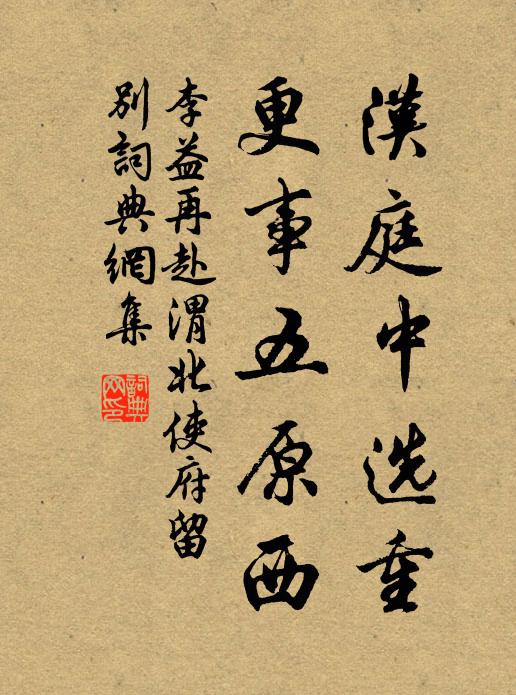 漢庭中选重
更事五原西
李益再赴渭北使府留
別詞典網集
詞典
网印